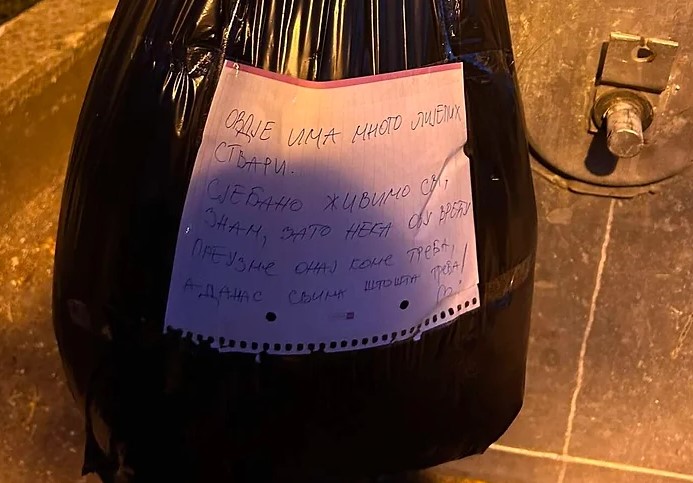 ОВДЈЕ ИМА МНОГО ЛИЈЕПИХ
СТВАРИ.
СЈЕБАНО ЖИВИМО СВИ,
ЗНАМ, ЗАТО НЕКА ОВУ ВРЕЋУ
ПРЕУЗМЕ ОНАЈ КОМЕ ТРЕБА,
А ДАНАС СВИМА ШТОШТА ТРЕБА!